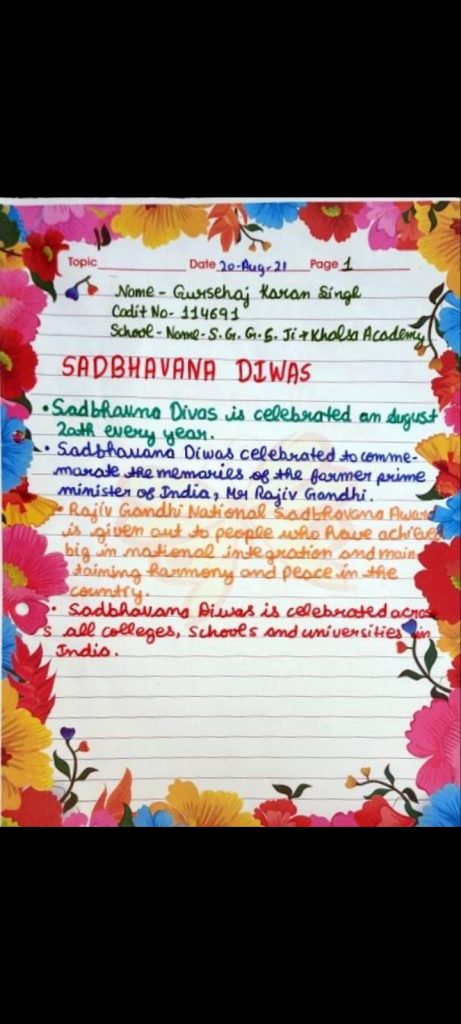 Topic Date 20-Aug-21 Page 1
Name - Gursehaj Karan Singh
Cadit No- 114691
School - Name - S. G. G. S. Ji Khalsa Academy
SADBHAVANA DIWAS
• Sadbhavna Divas is celebrated on August
20th every year.
• Sadbhavana Diwas celebrated to comme-
marate the memories of the former prime
minister of India, Mr Rajiv Gandhi.
• Rajiv Gandhi National Sadbhavana Award
is given out to people who have achieved
big in national integration and main
taining harmony and peace in the
country.
• Sadbhavana Diwas is celebrated acros
s all colleges, schools and universities in
India.